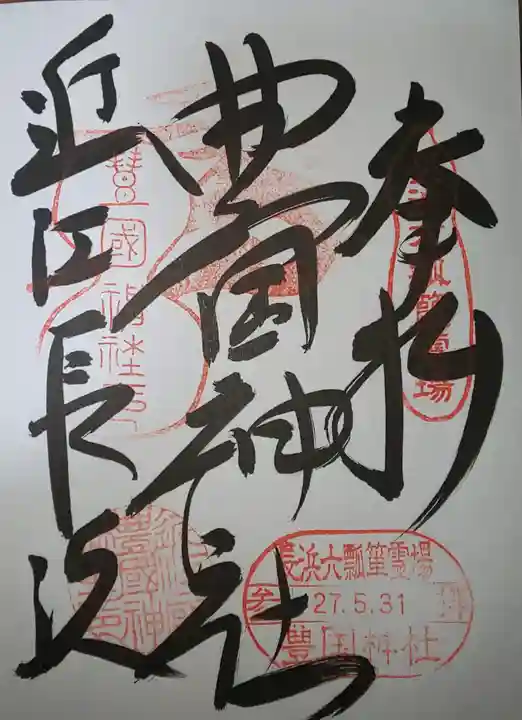 奉拝
豊国神社
近江長浜
豐國神社
長浜六瓢箪霊場
参 27.5.31 拝
豊国神社